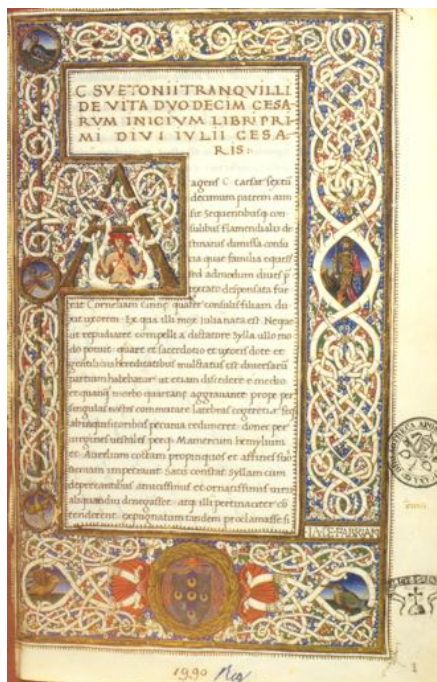 C SVETONII TRANQVILLI
DE VITA DVODECIM CESA
RVM INICIVM LIBRI PRI
MI DIVI IVLII CESA
RIS:
agens C caesar sextu
decimum patrem ami
sit Sequentibusq con
sulibus flamendialis de
stinatus dimissa
quae familia equest
sed admodum diues p
textato desponsata fue
rat Corneliam Cinne quater consulis filiam du
xit uxorem Ex qua illi mox Iulia nata est Neque
ut repudiaret compelli a dictatore Sylla ullo mo
do potuit quare et sacerdotio et uxoris dote et
gentiliciis hereditatibus multatus est diuersaru
partium habebatur ut etiam discedere e medio
et quanq morbo quartane aggrauante prope per
singulas noctes commutare latebras cogeretur seq
ab inquisitoribus pecunia redimeret donec per
uirgines uestales perq Mamercum
et Aurelium cottam propinquos et affines suos
ueniam impetrauit Satis constat Syllam cum
deprecantibus amicissimis et ornatissimis uiris
aliquandiu denegasset atq illi pertinaciter co
tenderent expugnatum tandem proclamasse si
1990
1